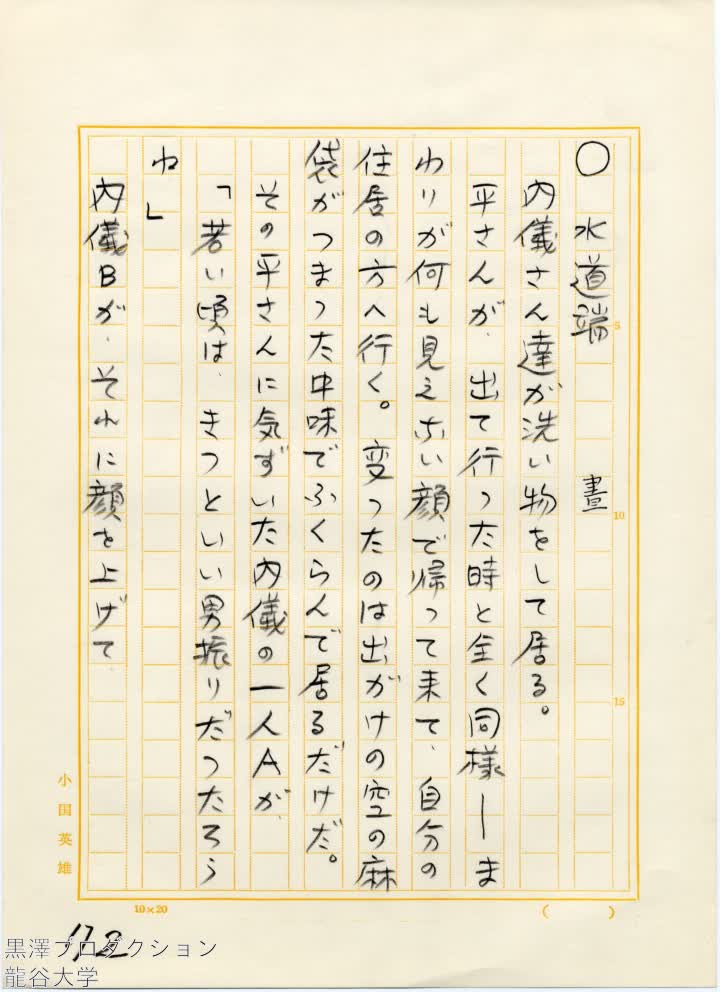 ○ 水道端 晝
内儀さん達が洗い物をして居る。
平さんが、出て行った時と全く同様―ま
わりが何も見えない顔で帰って来て、自分の
住居の方へ行く。変つたのは出がけの空の麻
袋がつまつた中味でふくらんで居るだけだ。
その平さんに気ずいた内儀の一人Aが、
「若い頃は、きつといい男振りだつたろう
ね」
内儀Bが、それに顔を上げて
5
10
15
小国英雄
10×20
( )
112
黒澤プロダクション
龍谷大学